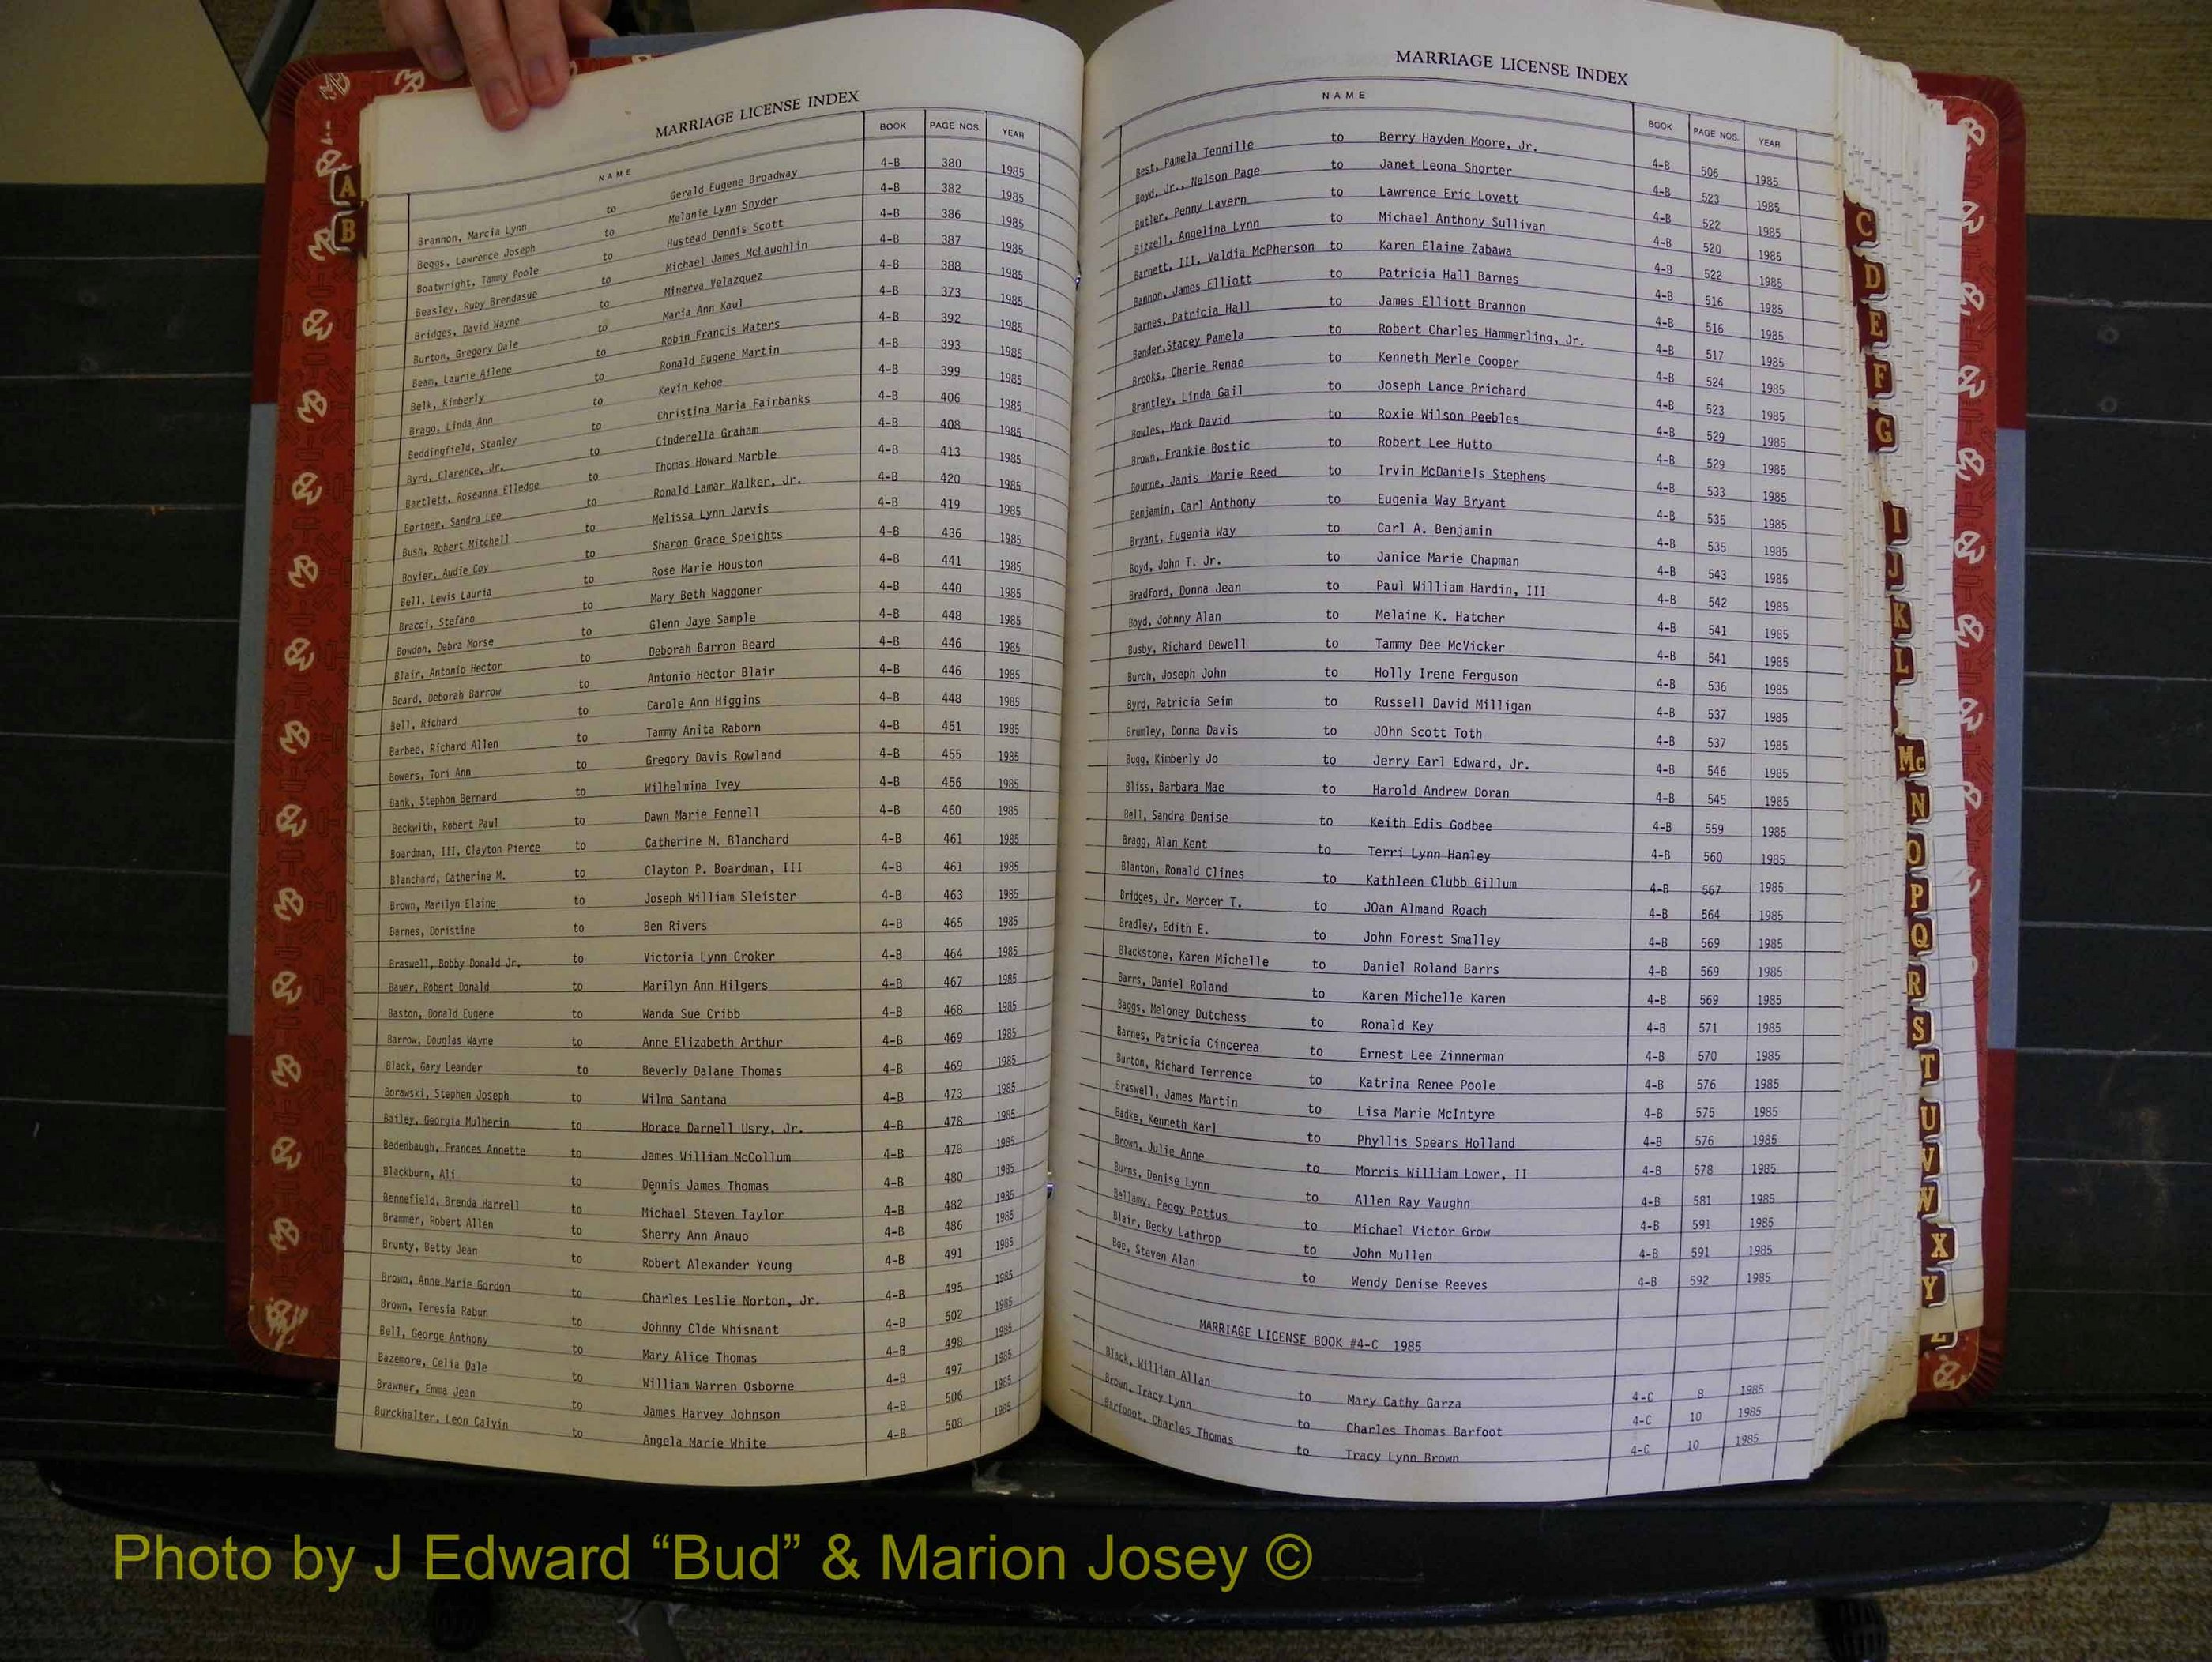 MARRIAGE LICENSE INDEX
NAME BOOK PAGE NOS. YEAR
Brannon, Marcia Lynn to Gerald Eugene Broadway 4-B 380 1985
Beggs, Lawrence Joseph to Melanie Lynn Snyder 4-B 382 1985
Boatwright, Tammy Poole to Hustead Dennis Scott 4-B 386 1985
Beasley, Ruby Brendasue to Michael James McLaughlin 4-B 387 1985
Bridges, David Wayne to Minerva Velazquez 4-B 388 1985
Burton, Gregory Dale to Maria Ann Kaul 4-B 373 1985
Beam, Laurie Ailene to Robin Francis Waters 4-B 392 1985
Belk, Kimberly to Ronald Eugene Martin 4-B 393 1985
Bragg, Linda Ann to Kevin Kehoe 4-B 399 1985
Beddingfield, Stanley to Christina Maria Fairbanks 4-B 406 1985
Byrd, Clarence, Jr. to Cinderella Graham 4-B 408 1985
Bartlett, Roseanna Elledge to Thomas Howard Marble 4-B 413 1985
Bortner, Sandra Lee to Ronald Lamar Walker, Jr. 4-B 420 1985
Bush, Robert Mitchell to Melissa Lynn Jarvis 4-B 419 1985
Bovier, Audie Coy to Sharon Grace Speights 4-B 436 1985
Bell, Lewis Lauria to Rose Marie Houston 4-B 441 1985
Bracci, Stefano to Mary Beth Waggoner 4-B 440 1985
Bowdon, Debra Morse to Glenn Jaye Sample 4-B 448 1985
Blair, Antonio Hector to Deborah Barron Beard 4-B 446 1985
Beard, Deborah Barrow to Antonio Hector Blair 4-B 446 1985
Bell, Richard to Carole Ann Higgins 4-B 448 1985
Barbee, Richard Allen to Tammy Anita Raborn 4-B 451 1985
Bowers, Tori Ann to Gregory Davis Rowland 4-B 455 1985
Bank, Stephon Bernard to Wilhelmina Ivey 4-B 456 1985
Beckwith, Robert Paul to Dawn Marie Fennell 4-B 460 1985
Boardman, III, Clayton Pierce to Catherine M. Blanchard 4-B 461 1985
Blanchard, Catherine M. to Clayton P. Boardman, III 4-B 461 1985
Brown, Marilyn Elaine to Joseph William Sleister 4-B 463 1985
Barnes, Doristine to Ben Rivers 4-B 465 1985
Braswell, Bobby Donald Jr. to Victoria Lynn Croker 4-B 464 1985
Bauer, Robert Donald to Marilyn Ann Hilgers 4-B 467 1985
Baston, Donald Eugene to Wanda Sue Cribb 4-B 468 1985
Barrow, Douglas Wayne to Anne Elizabeth Arthur 4-B 469 1985
Black, Gary Leander to Beverly Dalane Thomas 4-B 469 1985
Borowski, Stephen Joseph to Wilma Santana 4-B 473 1985
Bailey, Georgia Mulherin to Horace Darnell Usry, Jr. 4-B 478 1985
Bedenbaugh, Frances Annette to James William McCollum 4-B 478 1985
Blackburn, Ali to Dennis James Thomas 4-B 480 1985
Bennefield, Brenda Harrell to Michael Steven Taylor 4-B 482 1985
Brammer, Robert Allen to Sherry Ann Anauo 4-B 486 1985
Brunty, Betty Jean to Robert Alexander Young 4-B 491 1985
Brown, Anne Marie Gordon to Charles Leslie Norton, Jr. 4-B 495 1985
Brown, Teresia Rabun to Johnny Clde Whisnant 4-B 502 1985
Bell, George Anthony to Mary Alice Thomas 4-B 498 1985
Bazemore, Celia Dale to William Warren Osborne 4-B 497 1985
Brawner, Emma Jean to James Harvey Johnson 4-B 506 1985
Burckhalter, Leon Calvin to Angela Marie White 4-B 508 1985
MARRIAGE LICENSE INDEX
NAME BOOK PAGE NOS. YEAR
Best, Pamela Tennille to Berry Hayden Moore, Jr. 4-B 506 1985
Boyd, Jr., Nelson Page to Janet Leona Shorter 4-B 523 1985
Butler, Penny Lavern to Lawrence Eric Lovett 4-B 522 1985
Bizzell, Angelina Lynn to Michael Anthony Sullivan 4-B 520 1985
Barnett, III, Valdia McPherson to Karen Elaine Zabawa 4-B 522 1985
Bannon, James Elliott to Patricia Hall Barnes 4-B 516 1985
Barnes, Patricia Hall to James Elliott Brannon 4-B 516 1985
Bender,Stacey Pamela to Robert Charles Hammerling, Jr. 4-B 517 1985
Brooks, Cherie Renae to Kenneth Merle Cooper 4-B 524 1985
Brantley, Linda Gail to Joseph Lance Prichard 4-B 523 1985
Bowles, Mark David to Roxie Wilson Peebles 4-B 529 1985
Brown, Frankie Bostic to Robert Lee Hutto 4-B 529 1985
Bourne, Janis Marie Reed to Irvin McDaniels Stephens 4-B 533 1985
Benjamin, Carl Anthony to Eugenia Way Bryant 4-B 535 1985
Bryant, Eugenia Way to Carl A. Benjamin 4-B 535 1985
Boyd, John T. Jr. to Janice Marie Chapman 4-B 543 1985
Bradford, Donna Jean to Paul William Hardin, III 4-B 542 1985
Boyd, Johnny Alan to Melaine K. Hatcher 4-B 541 1985
Busby, Richard Dewell to Tammy Dee McVicker 4-B 541 1985
Burch, Joseph John to Holly Irene Ferguson 4-B 536 1985
Byrd, Patricia Seim to Russell David Milligan 4-B 537 1985
Brumley, Donna Davis to JOhn Scott Toth 4-B 537 1985
Bugg, Kimberly Jo to Jerry Earl Edward, Jr. 4-B 546 1985
Bliss, Barbara Mae to Harold Andrew Doran 4-B 545 1985
Bell, Sandra Denise to Keith Edis Godbee 4-B 559 1985
Bragg, Alan Kent to Terri Lynn Hanley 4-B 560 1985
Blanton, Ronald Clines to Kathleen Clubb Gillum 4-B 567 1985
Bridges, Jr. Mercer T. to JOan Almand Roach 4-B 564 1985
Bradley, Edith E. to John Forest Smalley 4-B 569 1985
Blackstone, Karen Michelle to Daniel Roland Barrs 4-B 569 1985
Barrs, Daniel Roland to Karen Michelle Karen 4-B 569 1985
Baggs, Meloney Dutchess to Ronald Key 4-B 571 1985
Barnes, Patricia Cincerea to Ernest Lee Zinnerman 4-B 570 1985
Burton, Richard Terrence to Katrina Renee Poole 4-B 576 1985
Braswell, James Martin to Lisa Marie McIntyre 4-B 575 1985
Badke, Kenneth Karl to Phyllis Spears Holland 4-B 576 1985
Brown, Julie Anne to Morris William Lower, II 4-B 578 1985
Burns, Denise Lynn to Allen Ray Vaughn 4-B 581 1985
Bellamy, Peggy Pettus to Michael Victor Grow 4-B 591 1985
Blair, Becky Lathrop to John Mullen 4-B 591 1985
Boe, Steven Alan to Wendy Denise Reeves 4-B 592 1985
MARRIAGE LICENSE BOOK #4-C 1985
Black, William Allan to Mary Cathy Garza 4-C 8 1985
Brown, Tracy Lynn to Charles Thomas Barfoot 4-C 10 1985
Barfooot, Charles Thomas to Tracy Lynn Brown 4-C 10 1985
A
B
C
D
E
F
G
I
J
K
L
Mc
N
O
P
Q
R
S
T
U
V
W
X
Y
Z
Photo by J Edward “Bud” & Marion Josey ©